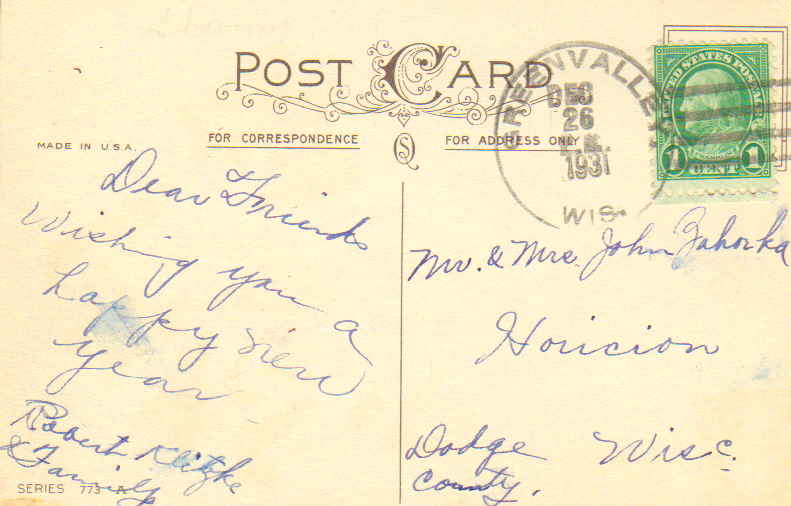 POST CARD
GREENVALLEY
DEC
26
1931
WIS.
UNITED STATES POSTAGE
1 CENT 1
MADE IN U.S.A.
FOR CORRESPONDENCE
FOR ADDRESS ONLY
Dear Friends
Wishing you a
happy New
Year
Robert Klitzke
& Family
SERIES 773 A
Mr. & Mrs. John Zahorka
Horicion
Dodge Wisc.
County.